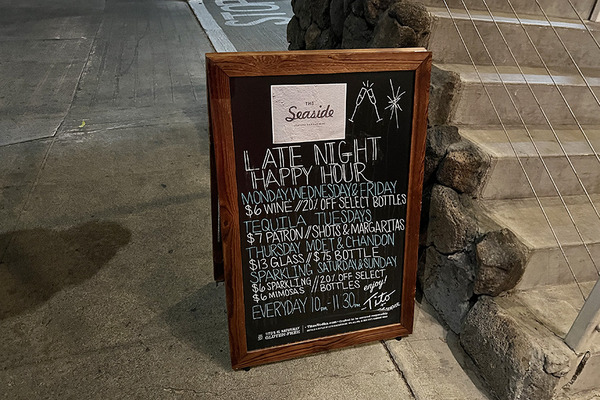 STOP
THE
Seaside
LATE NIGHT
HAPPY HOUR
MONDAY, WEDNESDAY & FRIDAY
$6 WINE // 20% OFF SELECT BOTTLES
TEQUILA TUESDAYS
$7 PATRON // SHOTS & MARGARITAS
THURSDAY MOET & CHANDON
$13 GLASS // $75 BOTTLE
SPARKLING SATURDAY & SUNDAY
$6 SPARKLING // 20% OFF SELECT
$6 MIMOSAS // BOTTLES
enjoy!
EVERYDAY 10PM - 11:30PM
Tito